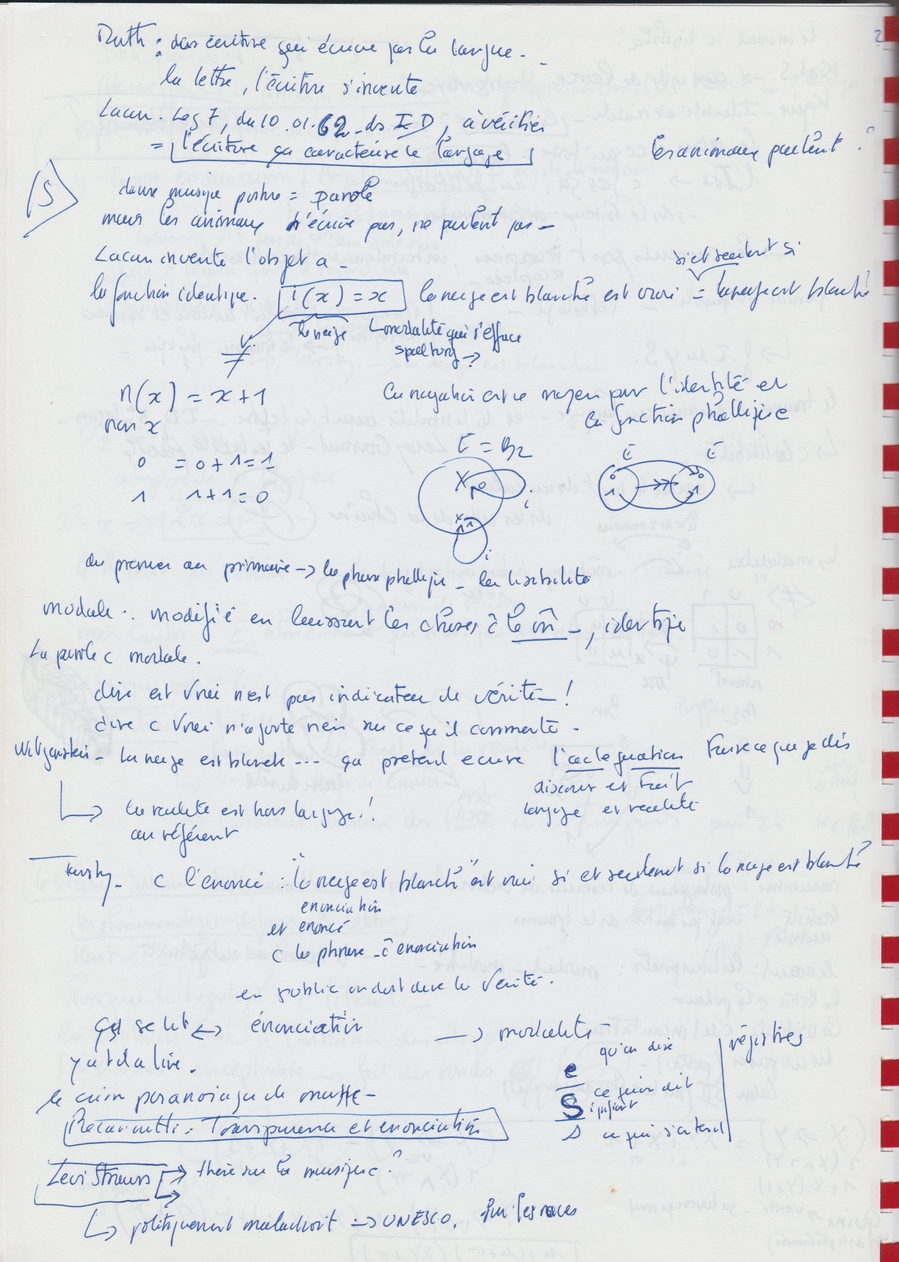 2
Ruth : das écriture qui écrive pas la langue.
la lettre, l'écriture s'invente
Lacan. Leç 7, du 10.01.62 - ds ID, à vérifier
= l'écriture ça caractérise le langage les animaux parlent ?
(5)
danse musique = parole
mais les animaux n'écrive pas, ne parlent pas -
Lacan invente l'objet a -
si et seulement si
la fonction identique. i(x) = x la neige est blanche est vrai = la neige est blanche
la neige modalité qui s'efface
≠
n(x) = x+1 la négation est le moyen par l'identité et
non x la fonction phallique
0 = 0+1=1 E = B2 E E
1 1+1=0
X
i
i
0 1
du premier au primaire → la phase phallique - la lisibilité
module. modifié en laissant les choses à , identique
La parole c modale.
dire est vrai n'est pas indicateur de vérité !
dire c vrai n'ajoute rien sur ce qu'il commente -
Witgenstein - la neige est blanche ... ça prétend écrire l'adéquation Faire ce que je dis
discours et Fait
langage et réalité
↳ la réalité est hors langage !
au référent
Tarsky - c l'énoncé : "la neige est blanche" est vrai si et seulement si la neige est blanche
énonciation
et énoncé
c la phrase - à énonciation
en public on doit dire la vérité.
ça se lit ↔ énonciation → modalité - qu'on dise registres
y a t d a lire. e
ce qui se dit
S
signifiant
s ce qui s'entend
le crion paranoïaque de
Récanati : Transparence et énonciation
Levi Strauss → thèse sur la musique ?
↳ politiquement maladroit → UNESCO. sur les races